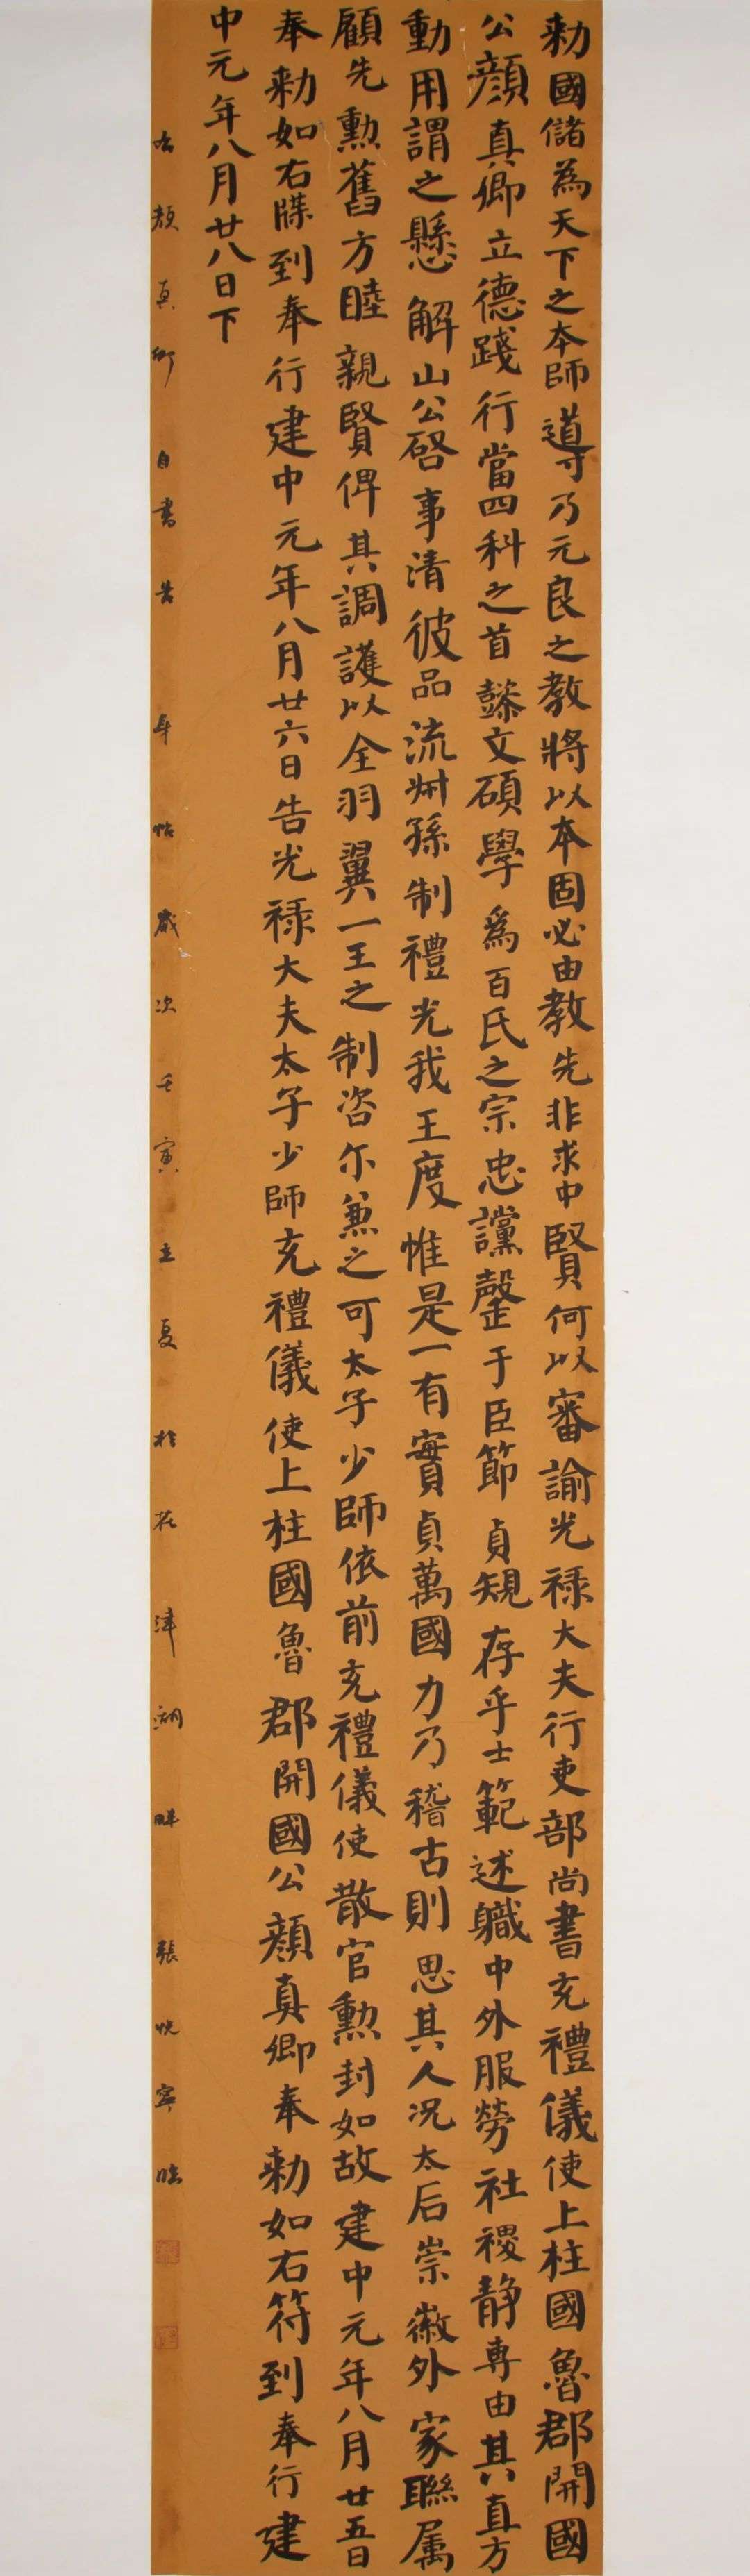 勅國儲為天下之本師導乃元良之教將以本固必由教先非求中賢何以審諭光禄大夫行吏部尚書充禮儀使上柱國魯郡開國
公顔真卿立德踐行當四科之首懿文碩學為百氏之宗忠讜罄于臣節貞規存乎士範述職中外服勞社稷静専由其直方
動用謂之懸解山公啓事清彼品流叔孫制禮光我王度惟是一有實貞萬國力乃稽古則思其人况太后崇徽外家聯属
顧先勲舊方睦親賢俾其調護以全羽翼一王之制咨尓兼之可太子少師依前充禮儀使散官勲封如故建中元年八月廿五日
奉勅如右牒到奉行建中元年八月廿六日告光禄大夫太子少師充禮儀使上柱國魯郡開國公顔真卿奉勅如右符到奉行建
中元年八月廿八日下
顔真卿自書告身帖歲次壬寅立夏於花津湖畔張悦寧臨